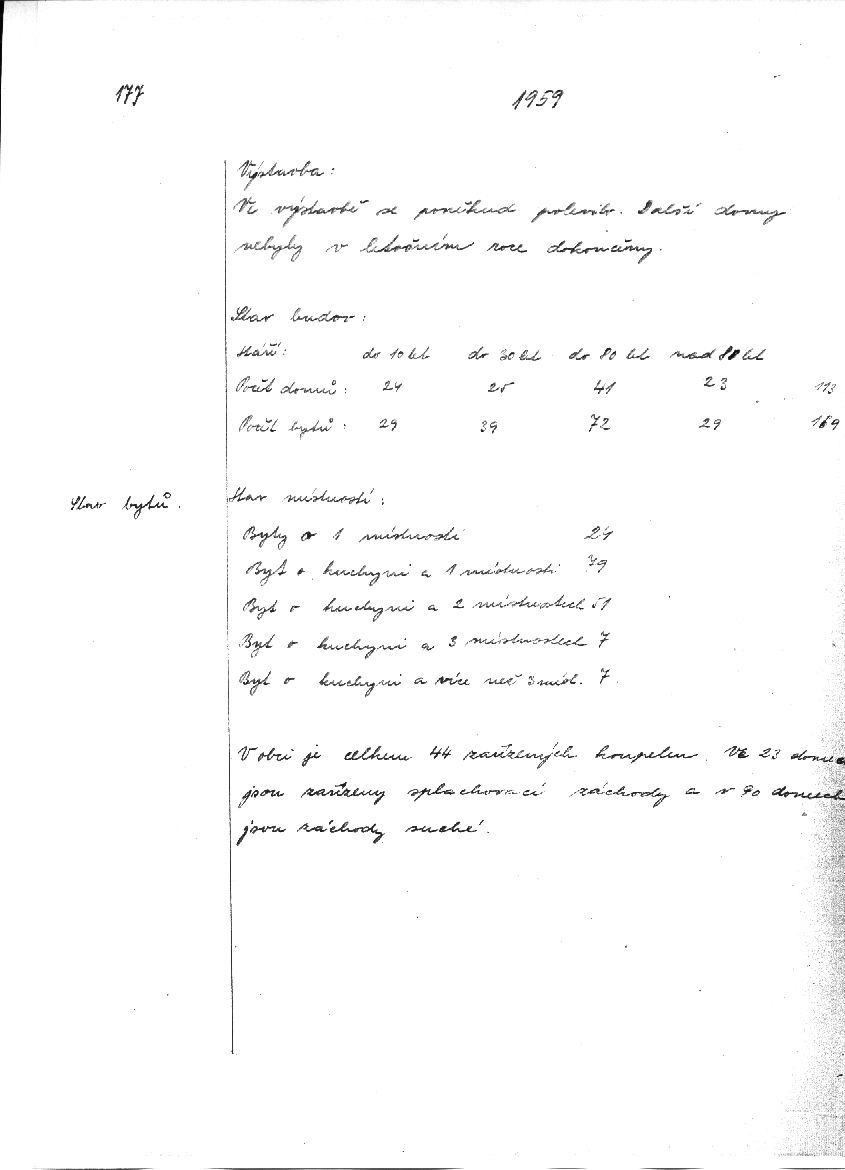 177
1959
Výstavba:
Ve výstavbě se poněkud polevilo. Další domy
nebyly v letošním roce dokončeny.
Stav budov:
Stáří: do 10 let do 30 let do 80 let nad 80 let
Počet domů: 24 25 41 23 113
Počet bytů: 29 39 72 29 169
Stav bytů.
Stav místností:
Byty o 1 místnosti 24
Byt o kuchyni a 1 místnosti 79
Byt o kuchyni a 2 místnostech 51
Byt o kuchyni a 3 místnostech 7
Byt o kuchyni a více než 3 míst. 7.
V obci je celkem 44 zařízených koupelen. Ve 23 domech
jsou zařízeny splachovací záchody a v 90 domech
jsou záchody suché.